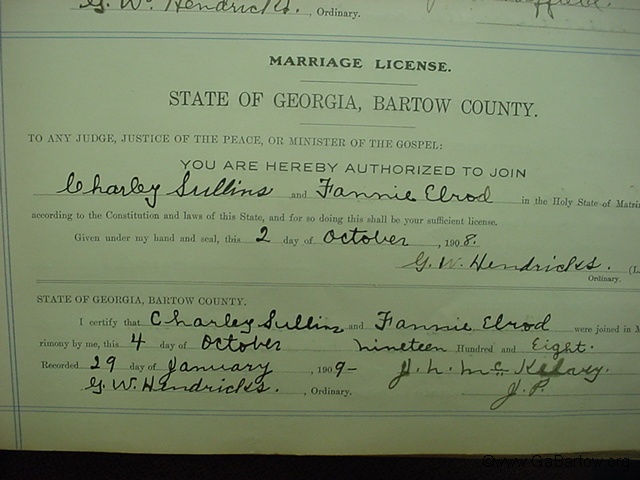 G. W. Hendricks. , Ordinary.
MARRIAGE LICENSE.
STATE OF GEORGIA, BARTOW COUNTY.
TO ANY JUDGE, JUSTICE OF THE PEACE, OR MINISTER OF THE GOSPEL:
YOU ARE HEREBY AUTHORIZED TO JOIN
Charley Sullins and Fannie Elrod in the Holy State of Matri
according to the Constitution and laws of this State, and for so doing this shall be your sufficient license.
Given under my hand and seal, this 2 day of October , 1908.
G. W. Hendricks. (L
Ordinary.
STATE OF GEORGIA, BARTOW COUNTY.
I certify that Charley Sullins and Fannie Elrod were joined in M
rimony by me, this 4 day of October nineteen Hundred and Eight.
Recorded 29 day of January , 1909- J. h. Mc
G. W. Hendricks. , Ordinary. J. P.
©www.GaBartow.org